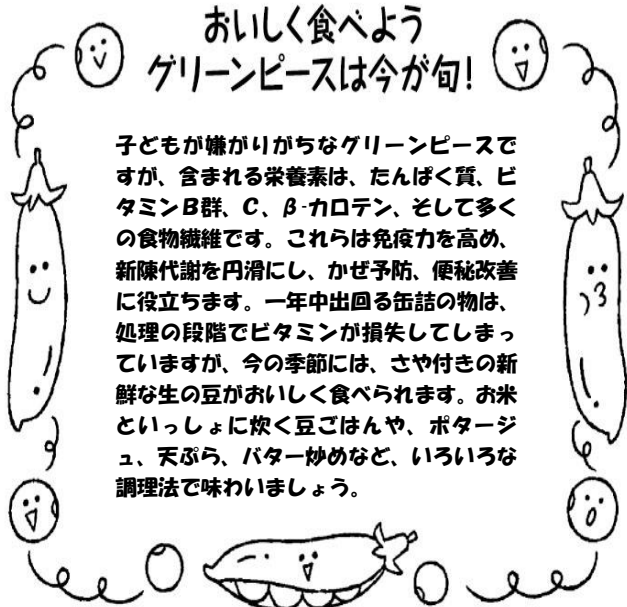 おいしく食べよう
グリーンピースは今が旬!
子どもが嫌がりがちなグリーンピースで
すが、含まれる栄養素は、たんぱく質、ビ
タミンB群、C、β-カロテン、そして多く
の食物繊維です。これらは免疫力を高め、
新陳代謝を円滑にし、かぜ予防、便秘改善
に役立ちます。一年中出回る缶詰の物は、
処理の段階でビタミンが損失してしまっ
ていますが、今の季節には、さや付きの新
鮮な生の豆がおいしく食べられます。お米
といっしょに炊く豆ごはんや、ポタージ
ュ、天ぷら、バター炒めなど、いろいろな
調理法で味わいましょう。